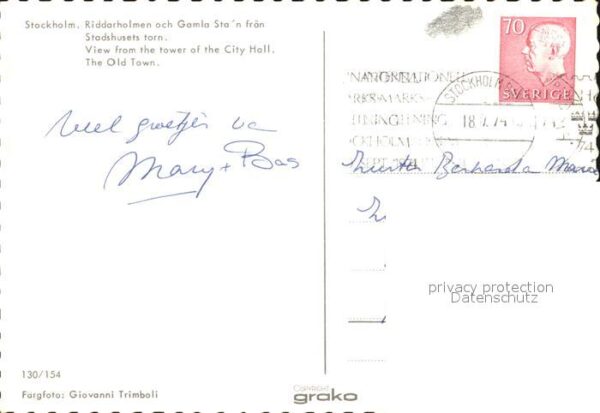 Stockholm. Riddarholmen och Gamla Sta´n från
Stadshusets torn.
View from the tower of the City Hall.
The Old Town.
70
SVERIGE
STOCKHOLM
18.7.74
Veel groetjes va
Mary + Bas
Zuster Berharda Maria
Z
privacy protection
Datenschutz
130/154
Fargfoto: Giovanni Trimboli
COPYRIGHT
grako